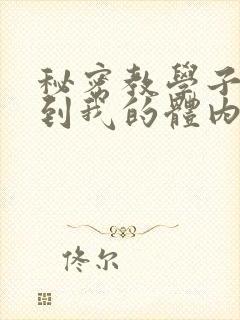 秘密教學子
到我的體內
佟尔